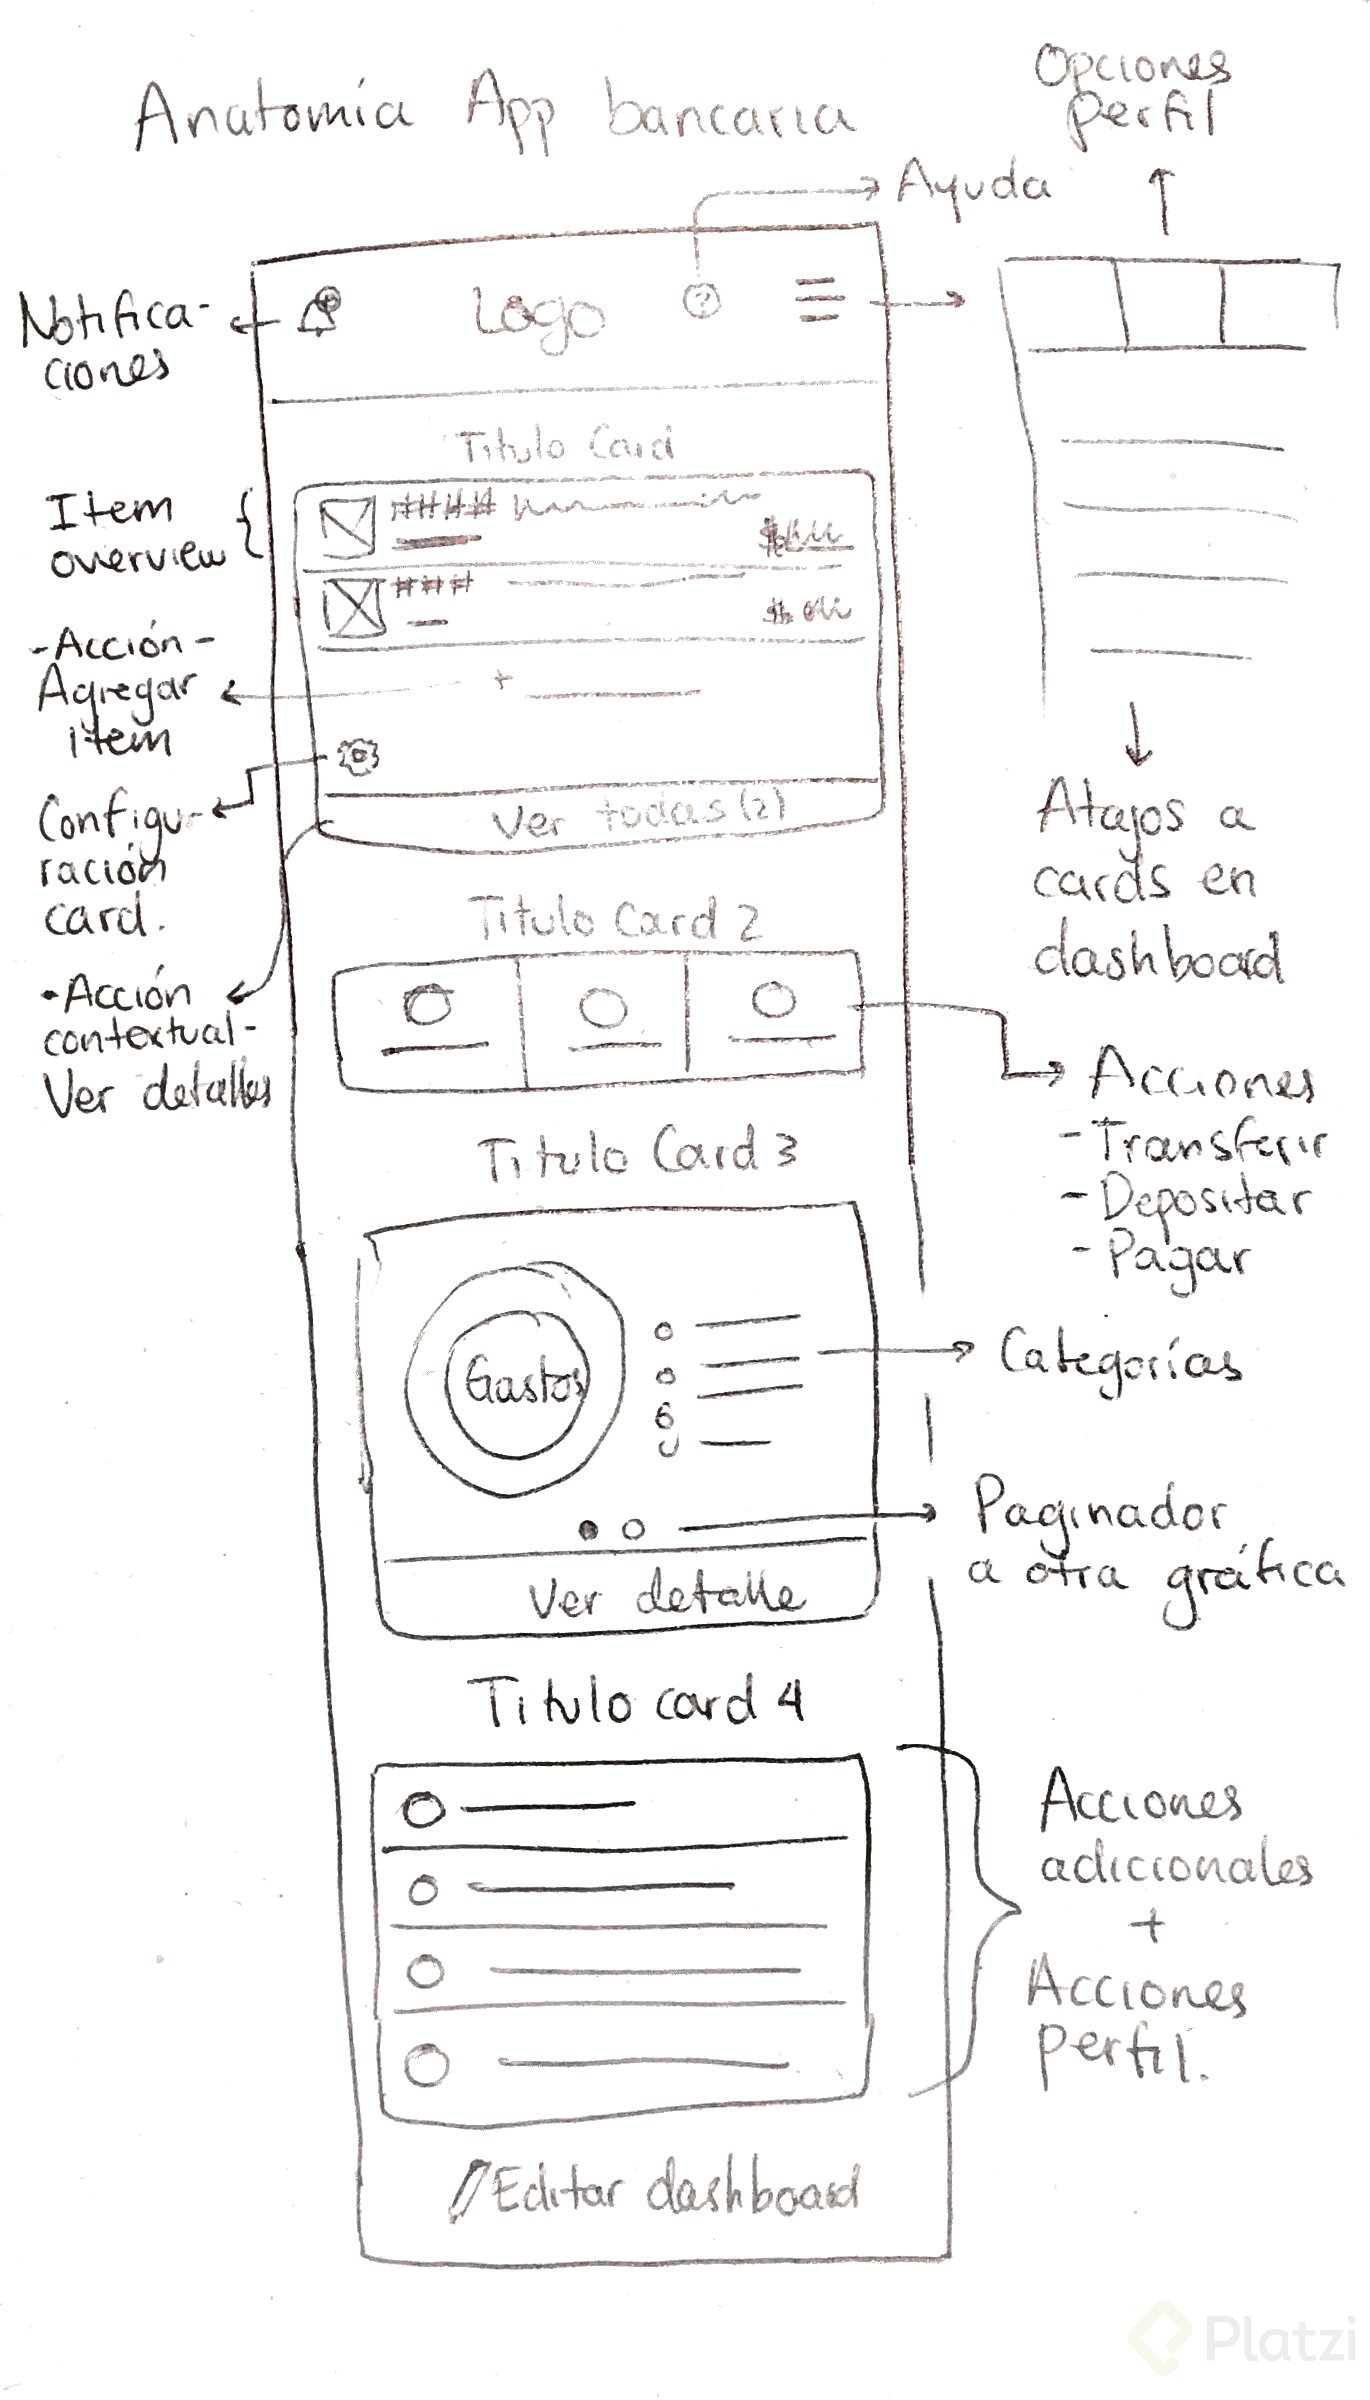 Anatomía App bancaria
Opciones
perfil
Ayuda
Notifica-
ciones
Logo
?
Titulo Card
Item
overview
####
$
###
$
-Acción-
Agregar
item
+
Configu-
ración
card.
Ver todas (2)
Atajos a
cards en
dashboard
Titulo Card 2
•Acción
contextual-
Ver detalles
Acciones
-Transferir
-Depositar
-Pagar
Titulo Card 3
Gastos
Categorías
Paginador
a otra gráfica
Ver detalle
Titulo card 4
Acciones
adicionales
+
Acciones
perfil.
Editar dashboard
Platzi